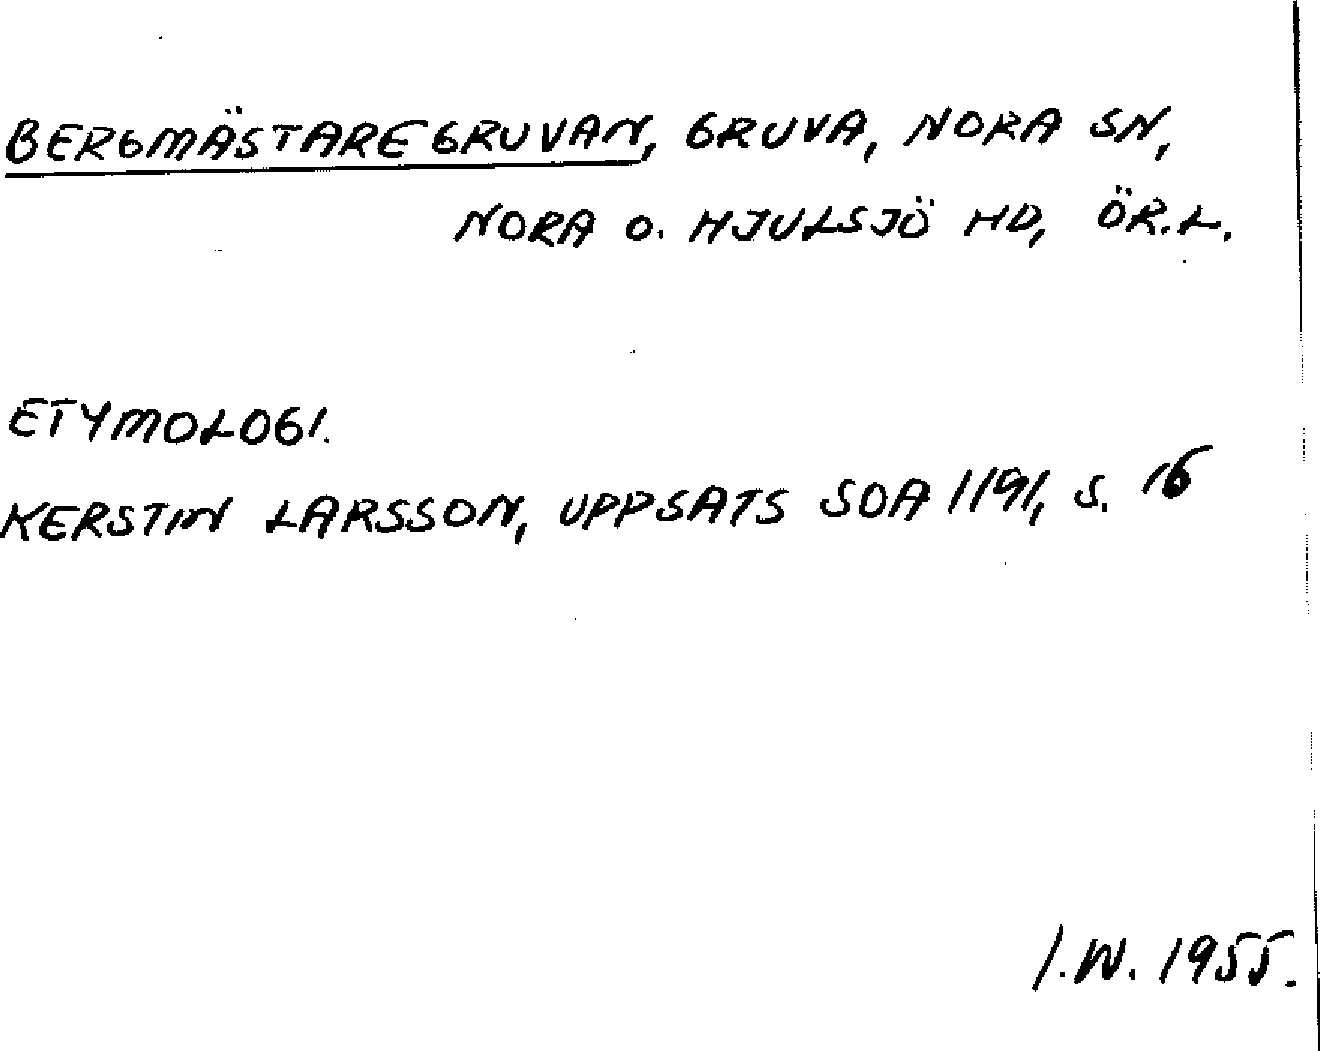 BERGMÄSTAREGRUVAN, GRUVA, NORA SN,
NORA O. HJULSJÖ HD, ÖR.L.
ETYMOLOGI.
KERSTIN LARSSON, UPPSATS SOA 1191, S. 16
I.W. 1955.